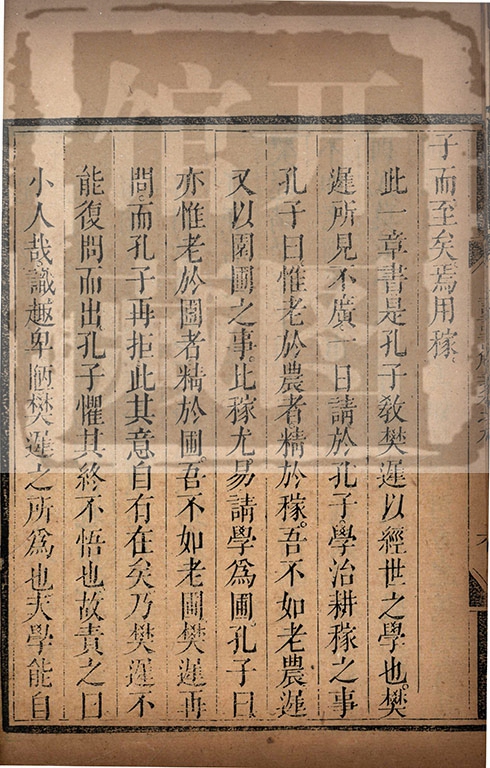 子而至矣焉用稼。
此一章書是孔子教樊遲以經世之學也。樊
遲所見不廣一日請於孔子。學治耕稼之事
孔子曰。惟老於農者精於稼。吾不如老農遲
又以園圃之事。比稼尤易請學為圃。孔子曰
亦惟老於圃者精於圃。吾不如老圃。樊遲再
問而孔子再拒此其意自有在矣乃樊遲不
能復問而出。孔子懼其終不悟也。故責之曰
小人哉識趣卑陋樊遲之所為也夫學能自